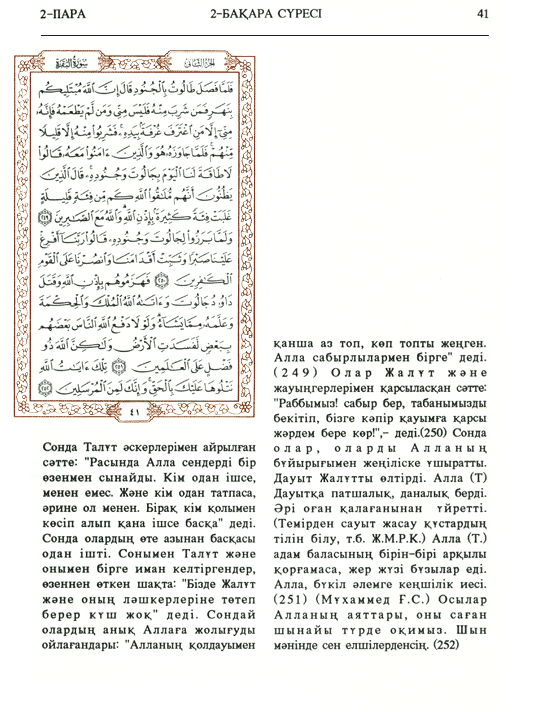 2-ПАРА
2-БАҚАРА СҮРЕСІ
41
الجزء الثاني
سورة البقرة
فَلَمَّا فَصَلَ طَالُوتُ بِٱلْجُنُودِ قَالَ إِنَّ ٱللَّهَ مُبْتَلِيكُم
بِنَهَرٍ فَمَن شَرِبَ مِنْهُ فَلَيْسَ مِنِّي وَمَن لَّمْ يَطْعَمْهُ فَإِنَّهُۥ
مِنِّيٓ إِلَّا مَنِ ٱغْتَرَفَ غُرْفَةَۢ بِيَدِهِۦ فَشَرِبُوا۟ مِنْهُ إِلَّا قَلِيلًا
مِّنْهُمْ فَلَمَّا جَاوَزَهُۥ هُوَ وَٱلَّذِينَ ءَامَنُوا۟ مَعَهُۥ قَالُوا۟
لَا طَاقَةَ لَنَا ٱلْيَوْمَ بِجَالُوتَ وَجُنُودِهِۦ قَالَ ٱلَّذِينَ
يَظُنُّونَ أَنَّهُم مُّلَٰقُوا۟ ٱللَّهِ كَم مِّن فِئَةٍ قَلِيلَةٍ
غَلَبَتْ فِئَةً كَثِيرَةَۢ بِإِذْنِ ٱللَّهِ وَٱللَّهُ مَعَ ٱلصَّٰبِرِينَ ٢٤٩
وَلَمَّا بَرَزُوا۟ لِجَالُوتَ وَجُنُودِهِۦ قَالُوا۟ رَبَّنَآ أَفْرِغْ
عَلَيْنَا صَبْرًا وَثَبِّتْ أَقْدَامَنَا وَٱنصُرْنَا عَلَى ٱلْقَوْمِ
ٱلْكَٰفِرِينَ ٢٥٠ فَهَزَمُوهُم بِإِذْنِ ٱللَّهِ وَقَتَلَ
دَاوُۥدُ جَالُوتَ وَءَاتَىٰهُ ٱللَّهُ ٱلْمُلْكَ وَٱلْحِكْمَةَ
وَعَلَّمَهُۥ مِمَّا يَشَآءُ وَلَوْلَا دَفْعُ ٱللَّهِ ٱلنَّاسَ بَعْضَهُم
بِبَعْضٍ لَّفَسَدَتِ ٱلْأَرْضُ وَلَٰكِنَّ ٱللَّهَ ذُو
فَضْلٍ عَلَى ٱلْعَٰلَمِينَ ٢٥١ تِلْكَ ءَايَٰتُ ٱللَّهِ
نَتْلُوهَا عَلَيْكَ بِٱلْحَقِّ وَإِنَّكَ لَمِنَ ٱلْمُرْسَلِينَ ٢٥٢
٤١
Сонда Талұт әскерлерімен айрылған
сәтте: "Расында Алла сендерді бір
өзенмен сынайды. Кім одан ішсе,
менен емес. Және кім одан татпаса,
әрине ол менен. Бірақ кім қолымен
көсіп алып қана ішсе басқа" деді.
Сонда олардың өте азынан басқасы
одан ішті. Сонымен Талұт және
онымен бірге иман келтіргендер,
өзеннен өткен шақта: "Бізде Жалұт
және оның ләшкерлеріне төтеп
берер күш жоқ" деді. Сондай
олардың анық Аллаға жолығуды
ойлағандары: "Алланың қолдауымен
қанша аз топ, көп топты жеңген.
Алла сабырлылармен бірге" деді.
(249) Олар Жалұт және
жауыңгерлерімен қарсыласқан сәтте:
"Раббымыз! сабыр бер, табанымызды
бекітіп, бізге кәпір қауымға қарсы
жәрдем бере көр!",- деді.(250) Сонда
олар, оларды Алланың
бұйырығымен жеңіліске ұшыратты.
Дауыт Жалұтты өлтірді. Алла (Т)
Дауытқа патшалық, даналық берді.
Әрі оған қалағанынан үйретті.
(Темірден сауыт жасау құстардың
тілін білу, т.б. Ж.М.Р.К.) Алла (Т.)
адам баласының бірін-бірі арқылы
қорғамаса, жер жүзі бұзылар еді.
Алла, бүкіл әлемге кеңшілік иесі.
(251) (Мұхаммед Ғ.С.) Осылар
Алланың аяттары, оны саған
шынайы түрде оқимыз. Шын
мәнінде сен елшілерденсің. (252)